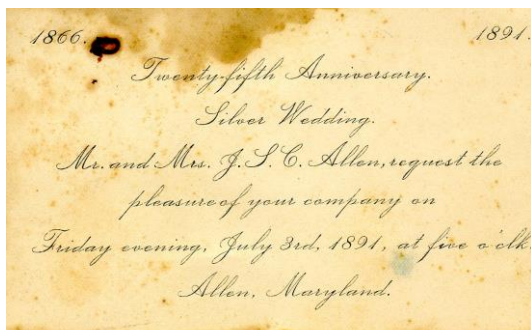 1866. 1891.
Twenty-fifth Anniversary.
Silver Wedding.
Mr. and Mrs. J. S. C. Allen, request the
pleasure of your company on
Friday evening, July 3rd, 1891, at five o'clk.
Allen, Maryland.